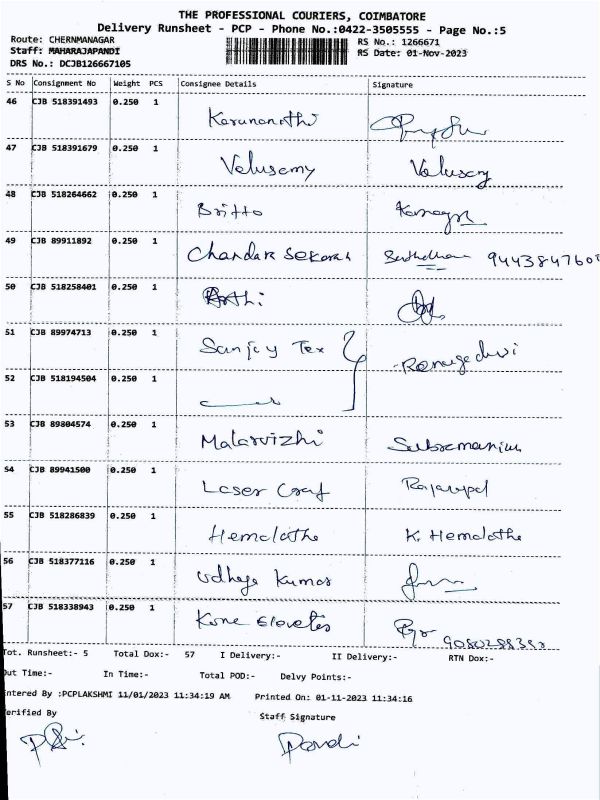 THE PROFESSIONAL COURIERS, COIMBATORE
Delivery Runsheet - PCP - Phone No.:0422-3505555 - Page No.:5
Route: CHERNMANAGAR RS No.: 1266671
Staff: MAHARAJAPANDI RS Date: 01-Nov-2023
DRS No.: DCJB126667105
S No Consignment No Weight PCS Consignee Details Signature
46 CJB 518391493 0.250 1 Karunanithi
47 CJB 518391679 0.250 1 Velusamy Velusamy
48 CJB 518264662 0.250 1 Britto
49 CJB 89911892 0.250 1 Chandra Sekaran 944384760
50 CJB 518258401 0.250 1 Arthi
51 CJB 89974713 0.250 1 Sanjay Tex Renugadevi
52 CJB 518194504 0.250 1
53 CJB 89804574 0.250 1 Malarvizhi Subramanium
54 CJB 89941500 0.250 1 Laser Craf Rajagopal
55 CJB 518286839 0.250 1 Hemalatha K. Hemalatha
56 CJB 518377116 0.250 1 Udhaya Kumar
57 CJB 518338943 0.250 1 Kone Elevates
Tot. Runsheet:- 5 Total Dox:- 57 I Delivery:- II Delivery:- RTN Dox:-
Out Time:- In Time:- Total POD:- Delvy Points:-
Entered By :PCPLAKSHMI 11/01/2023 11:34:19 AM Printed On: 01-11-2023 11:34:16
Verified By Staff Signature
Pandi